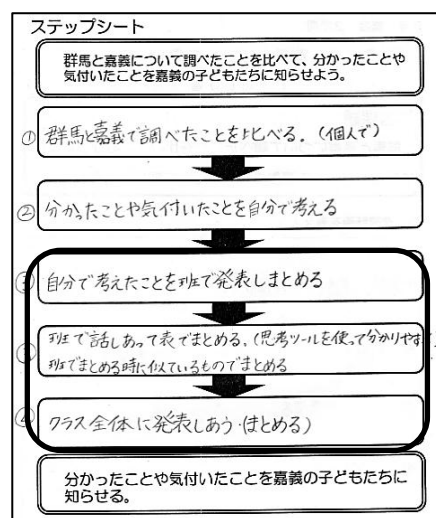 ステップシート
群馬と嘉義について調べたことを比べて、分かったことや
気付いたことを嘉義の子どもたちに知らせよう。
① 群馬と嘉義で調べたことを比べる。(個人で)
② 分かったことや気付いたことを自分で考える
③ 自分で考えたことを班で発表しまとめる
班で話しあって表でまとめる。(思考ツールを使って分かりやす
班でまとめる時に似ているものでまとめる
クラス全体に発表しあう・(まとめる)
分かったことや気付いたことを嘉義の子どもたちに
知らせる。